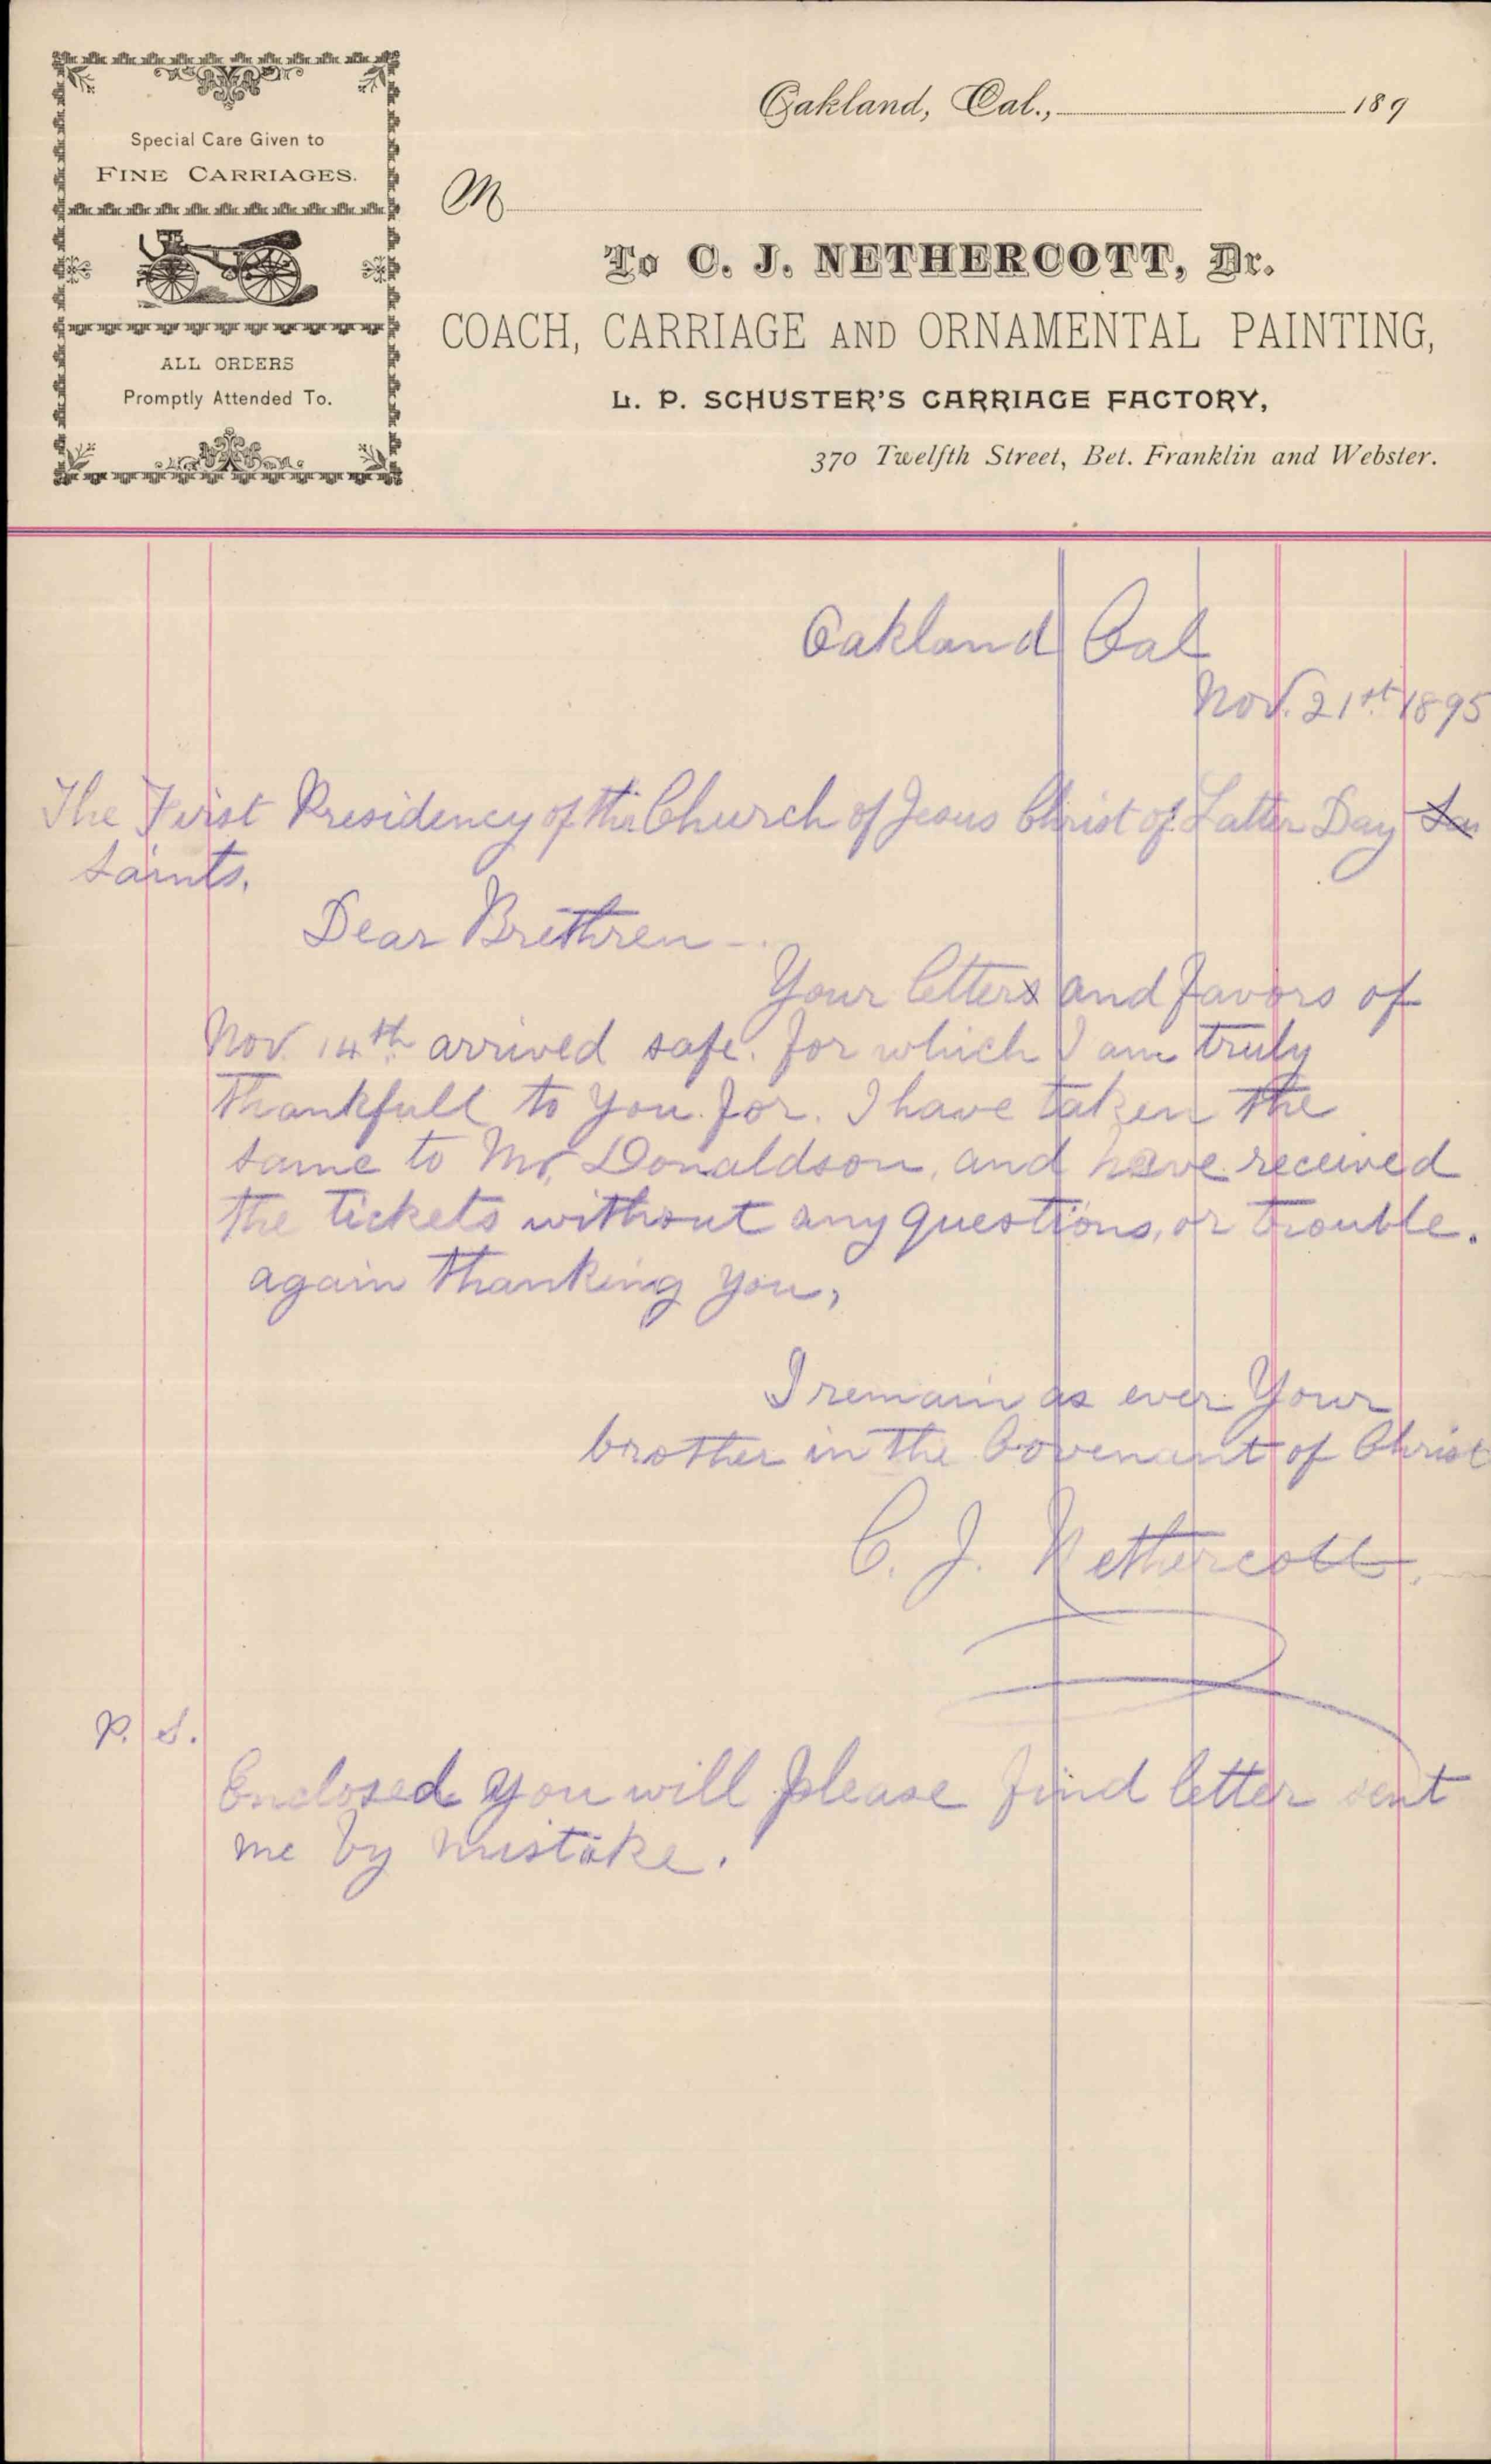 Special Care Given to
FINE CARRIAGES.
ALL ORDERS
Promptly Attended To.
Oakland, Cal., 189
M
To C. J. NETHERCOTT, Dr.
COACH, CARRIAGE AND ORNAMENTAL PAINTING,
L. P. SCHUSTER'S CARRIAGE FACTORY,
370 Twelfth Street, Bet. Franklin and Webster.
Oakland Cal
Nov. 21st 1895
The First Presidency of the Church of Jesus Christ of Latter Day Sai
Saints.
Dear Brethren -
Your letters and favors of
Nov. 14th arrived safe. for which I am truly
thankfull to you for. I have taken the
same to Mr. Donaldson, and have received
the tickets without any questions, or trouble.
again thanking you,
I remain as ever Your
brother in the Covenant of Christ
C. J. Nethercott.
P. S.
Enclosed you will please find letter sent
me by mistake.